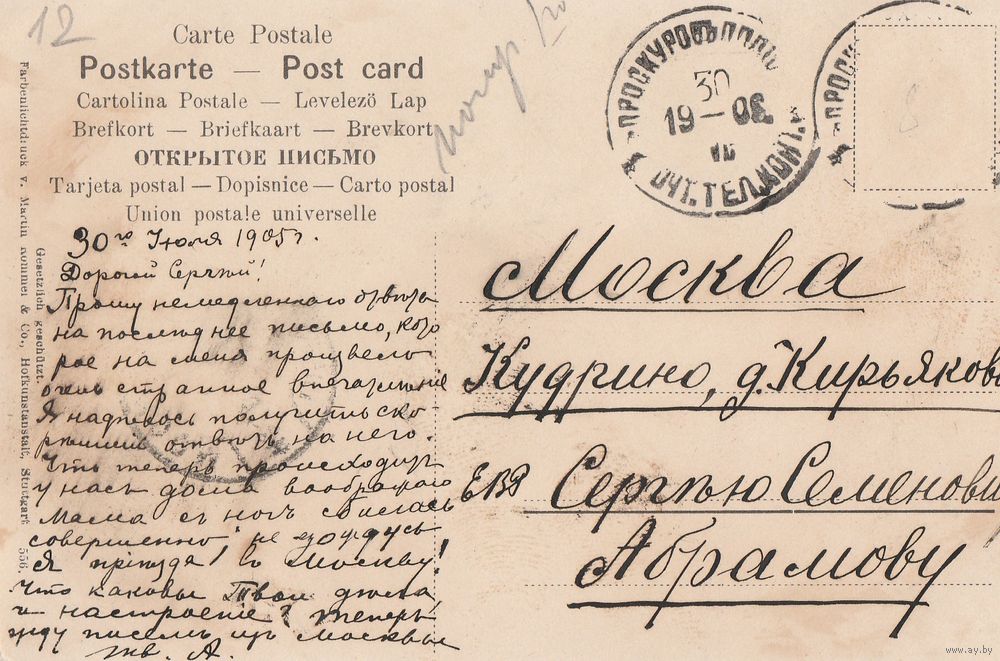 12
Carte Postale
Postkarte — Post card
Cartolina Postale — Levelezö Lap
Brefkort — Briefkaart — Brevkort
ОТКРЫТОЕ ПИСЬМО
Tarjeta postal — Dopisnice — Carto postal
Union postale universelle
Farbenlichtdruck v. Martin Rommel & Co., Hofkunstanstalt, Stuttgart 556.
Gesetzlich geschützt.
ПРОСКУРОВЪ ПОДОЛ
30
19 — 05
ПОЧТ. ТЕЛ. КОНТ.
ПРОСК
30го Июля 1905 г.
Дорогой Сергѣй!
Прошу немедленнаго отвѣта
на послѣднее письмо, кото
рое на меня произвело
очень странное впечатлѣніе
Я надѣюсь получить ско-
отвѣтъ на него.
Что теперь происходитъ
у насъ дома воображаю
Мама съ ногъ сбилась
совершенно не дождусь
я пріѣзда въ Москву!
Что каковы Твои дѣла
и настроеніе? теперь
жду писемъ изъ Москвы
тв. А.
Москва
Кудрино, д. Кирьякова
ЕВБ Сергѣю Семенови
Абрамову
www.ay.by